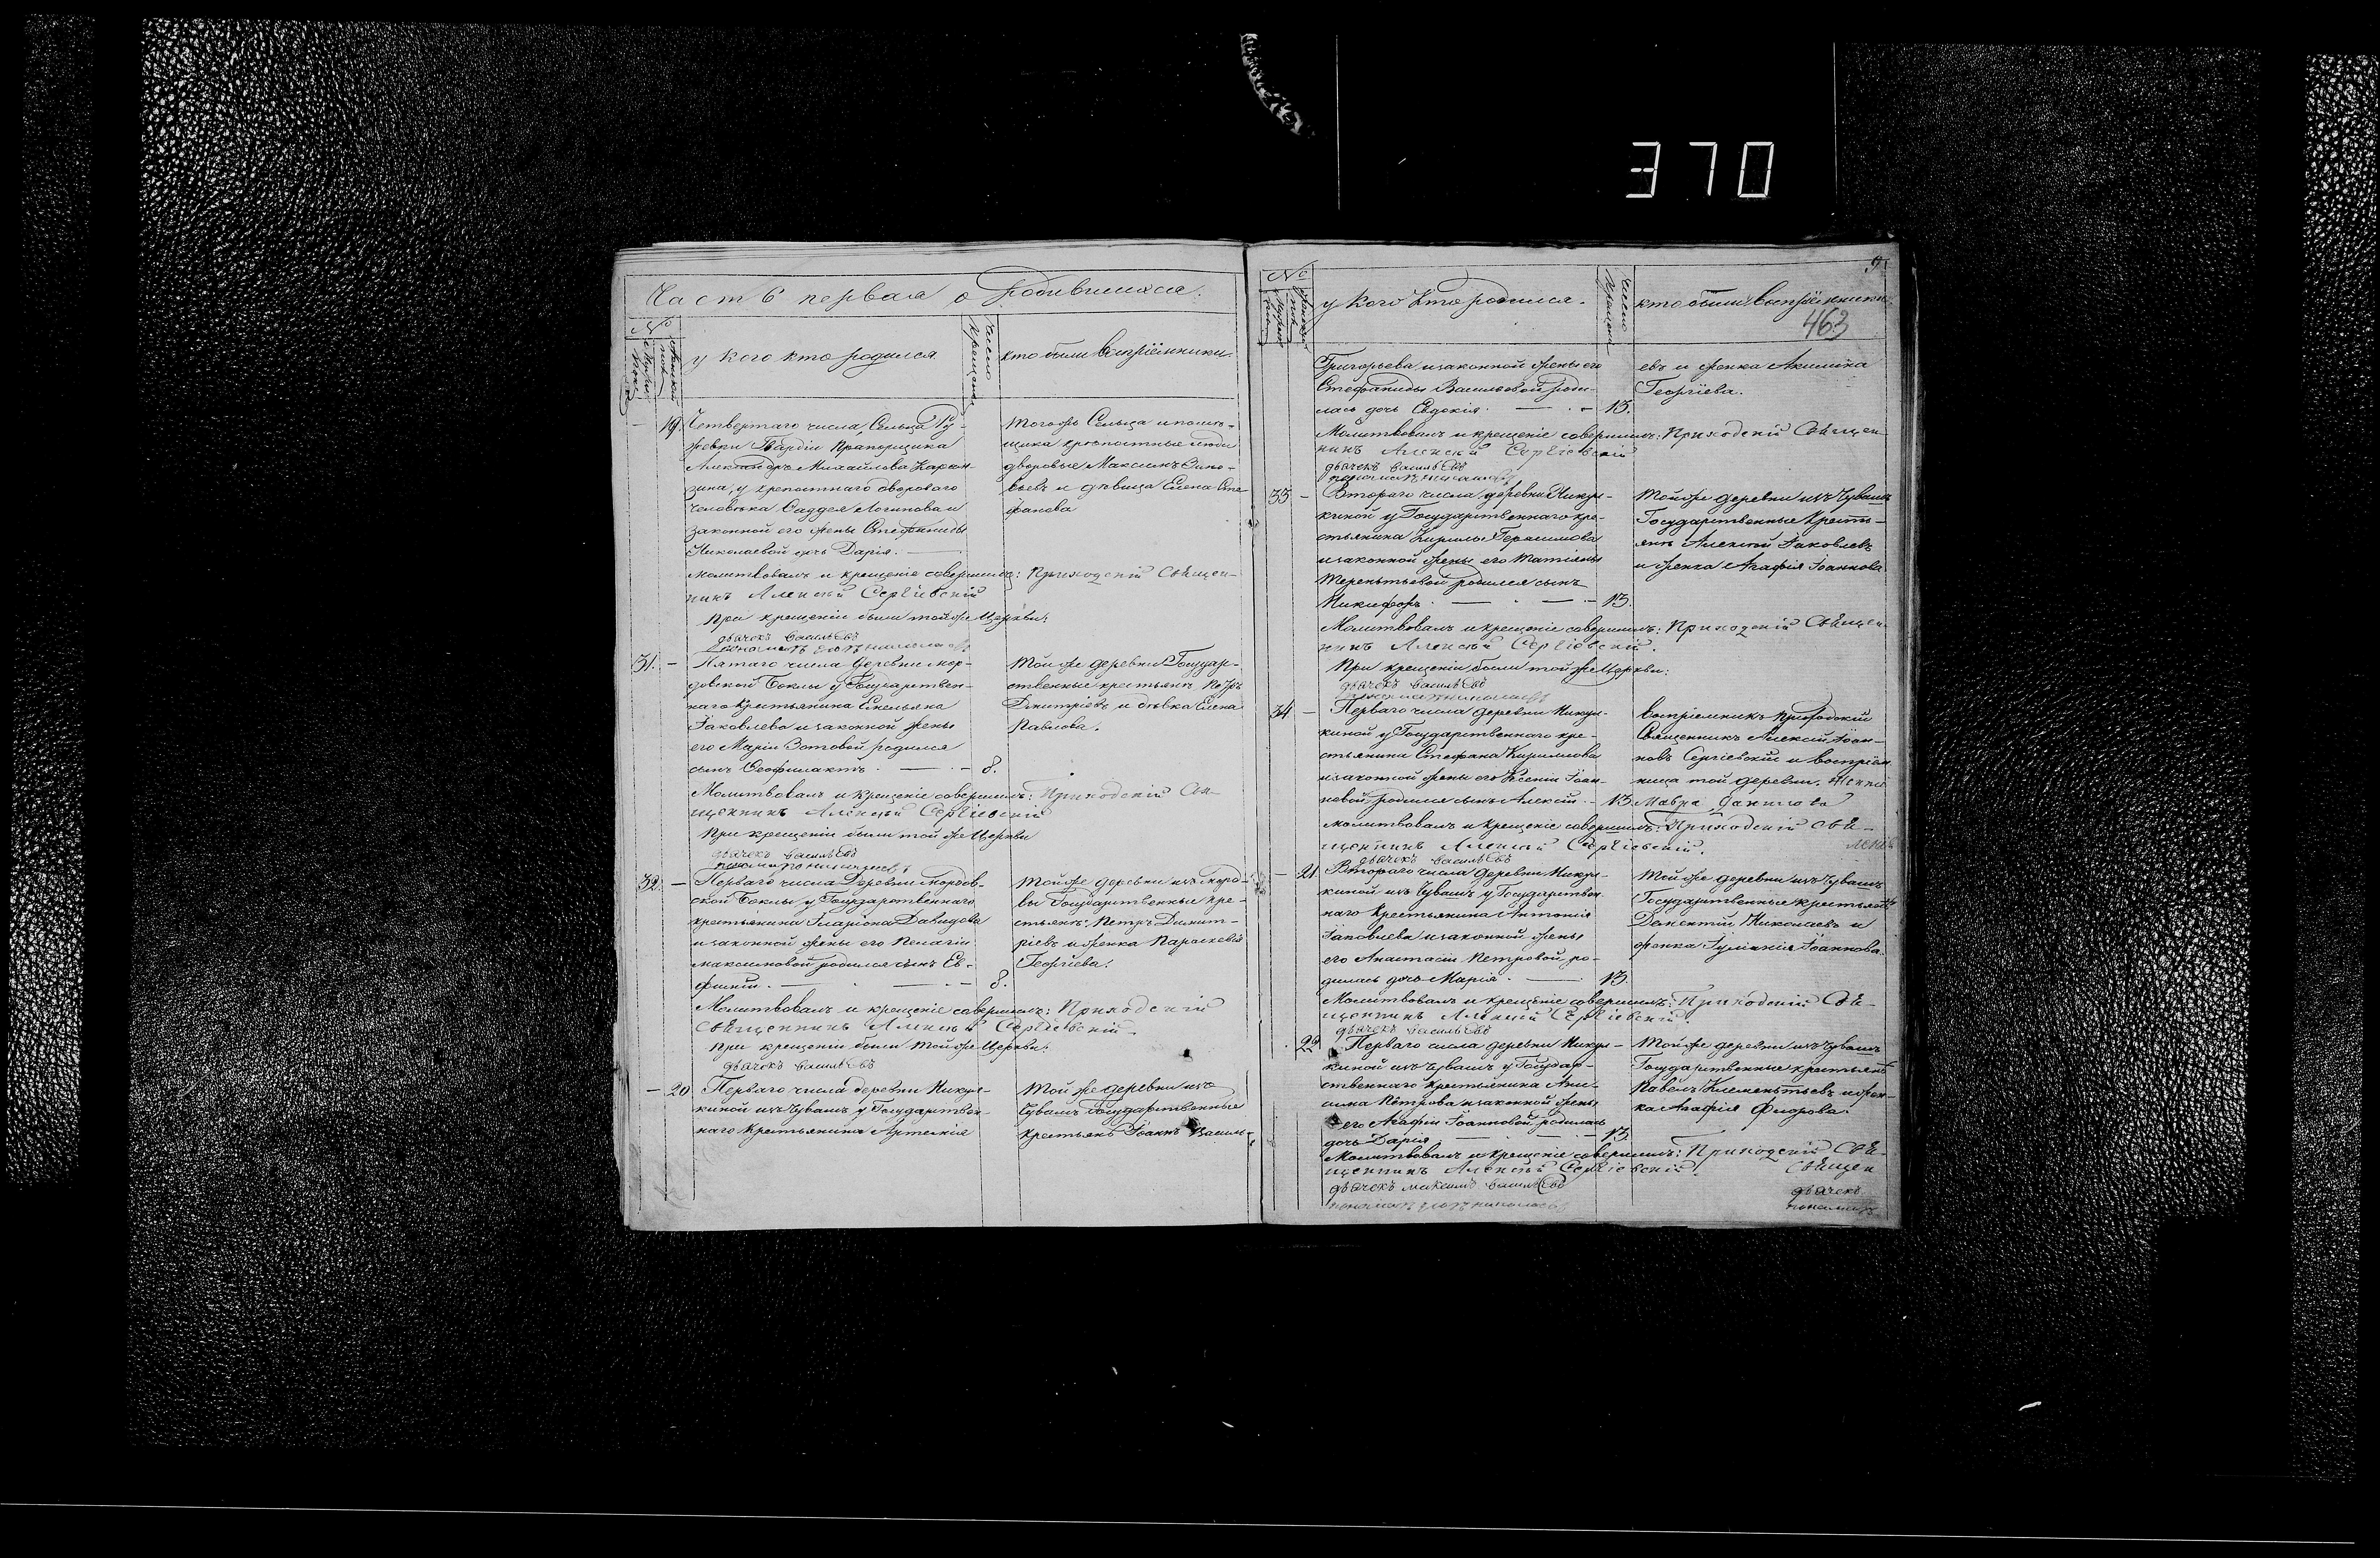 370
Часть первая о Родившихся.
№
Мужеска
Женска
у кого кто родился
Число Крещенія
кто были воспріемники
19 Четвертаго числа, Сельца
Гвардіи Прапорщика
Александра Михайлова
зина, у крепостнаго двороваго
человѣка Фаддея Логинова и
законной его жены Стефаниды
Николаевой дочь Дарія.
Тогожъ Сельца и помѣ-
щика крѣпостные люди
дворовые Максимъ
и дѣвица Елена Сте-
фанова
молитвовалъ и крещеніе совершилъ: Приходскій Священ-
никъ Алексѣй Сергіевскій
При крещеніи были той же Церкви:
дьячекъ Васильевъ
31. Пятаго числа деревни Мор-
довской Боклы у Государствен-
наго Крестьянина Емельяна
Іаковлева и законной жены
его Маріи Зотовой родился
сынъ Феофилактъ. 8.
Той же деревни Государ-
ственные крестьянъ Петръ
Димитріевъ и дѣвка Елена
Павлова.
Молитвовалъ и крещеніе совершилъ: Приходскій Свя-
щенникъ Алексѣй Сергіевскій
При крещеніи были той же Церкви
дьячекъ Васильевъ
32. Перваго числа Деревни Мордов-
ской Боклы у Государственнаго
крестьянина Иларіона Давидова
и законной жены его Пелагіи
Максимовой родился сынъ Ев-
фимій. 8.
Той же деревни изъ Морд-
вы Государственные кре-
стьянъ: Петръ Димит-
ріевъ и женка Параскевія
Георгіева.
Молитвовалъ и крещеніе совершилъ: Приходскій
Священникъ Алексѣй Сергіевскій.
При крещеніи были той же Церкви:
дьячекъ Васильевъ
20 Перваго числа деревни Никул-
киной изъ Чувашъ у Государствен-
наго Крестьянина Артемія
Той же деревни изъ
Чувашъ Государственные
Крестьянъ Іоаннъ Василь-
№
у кого кто родился.
Число Крещенія
кто были воспріемники
463
Григорьева и законной жены его
Стефаниды Васильевой роди-
лась дочь Евдокія. 13.
евъ и женка Акилина
Георгіева.
Молитвовалъ и крещеніе совершилъ: Приходскій Священ-
никъ Алексѣй Сергіевскій
дьячекъ Васильевъ
33 Втораго числа деревни Никул-
киной у Государственнаго кре-
стьянина Кирилы Герасимова
и законной жены его Татіяны
Терентьевой родился сынъ
Никифоръ. 13.
Той же деревни изъ Чувашъ
Государственные Кресть-
янъ Алексѣй Іаковлевъ
и женка Агафія Іоаннова
Молитвовалъ и крещеніе совершилъ: Приходскій Священ-
никъ Алексѣй Сергіевскій.
При крещеніи были той же Церкви:
дьячекъ Васильевъ
34 Перваго числа деревни Никул-
киной у Государственнаго кре-
стьянина Стефана Кириллова
и законной жены его Ксеніи Іоан-
новой родился сынъ Алексій. 13.
Воспріемникъ Приходскій
Священникъ Алексій Іоан-
новъ Сергіевскій и воспріем-
ница той деревни.
Мавра Данилова
молитвовалъ и крещеніе совершилъ: Приходскій Свя-
щенникъ Алексѣй Сергіевскій.
дьячекъ Васильевъ
21 Втораго числа деревни Никул-
киной изъ Чувашъ у Государствен-
наго Крестьянина Антонія
Іаковлева и законной жены
его Анастасіи Петровой, ро-
дилась дочь Марія. 13.
Той же деревни изъ Чувашъ
Государственные крестьянъ
Дементій Николаевъ и
женка Іуліанія Іоаннова.
Молитвовалъ и крещеніе совершилъ: Приходскій Свя-
щенникъ Алексѣй Сергіевскій.
дьячекъ Васильевъ
22 Перваго числа деревни Никул-
киной изъ Чувашъ у Государ-
ственнаго крестьянина Ани-
сима Петрова и законной жены
его Агафіи Іоанновой родилась
дочь Дарія 13.
Той же деревни изъ Чувашъ
Государственные крестьянъ
Павелъ Клементьевъ и жен-
ка Агафія Фиорова.
Молитвовалъ и крещеніе совершилъ: Приходскій Свя-
щенникъ Алексѣй Сергіевскій
Священ
дьячекъ Максимъ Васильевъ
дьячекъ
пономарь